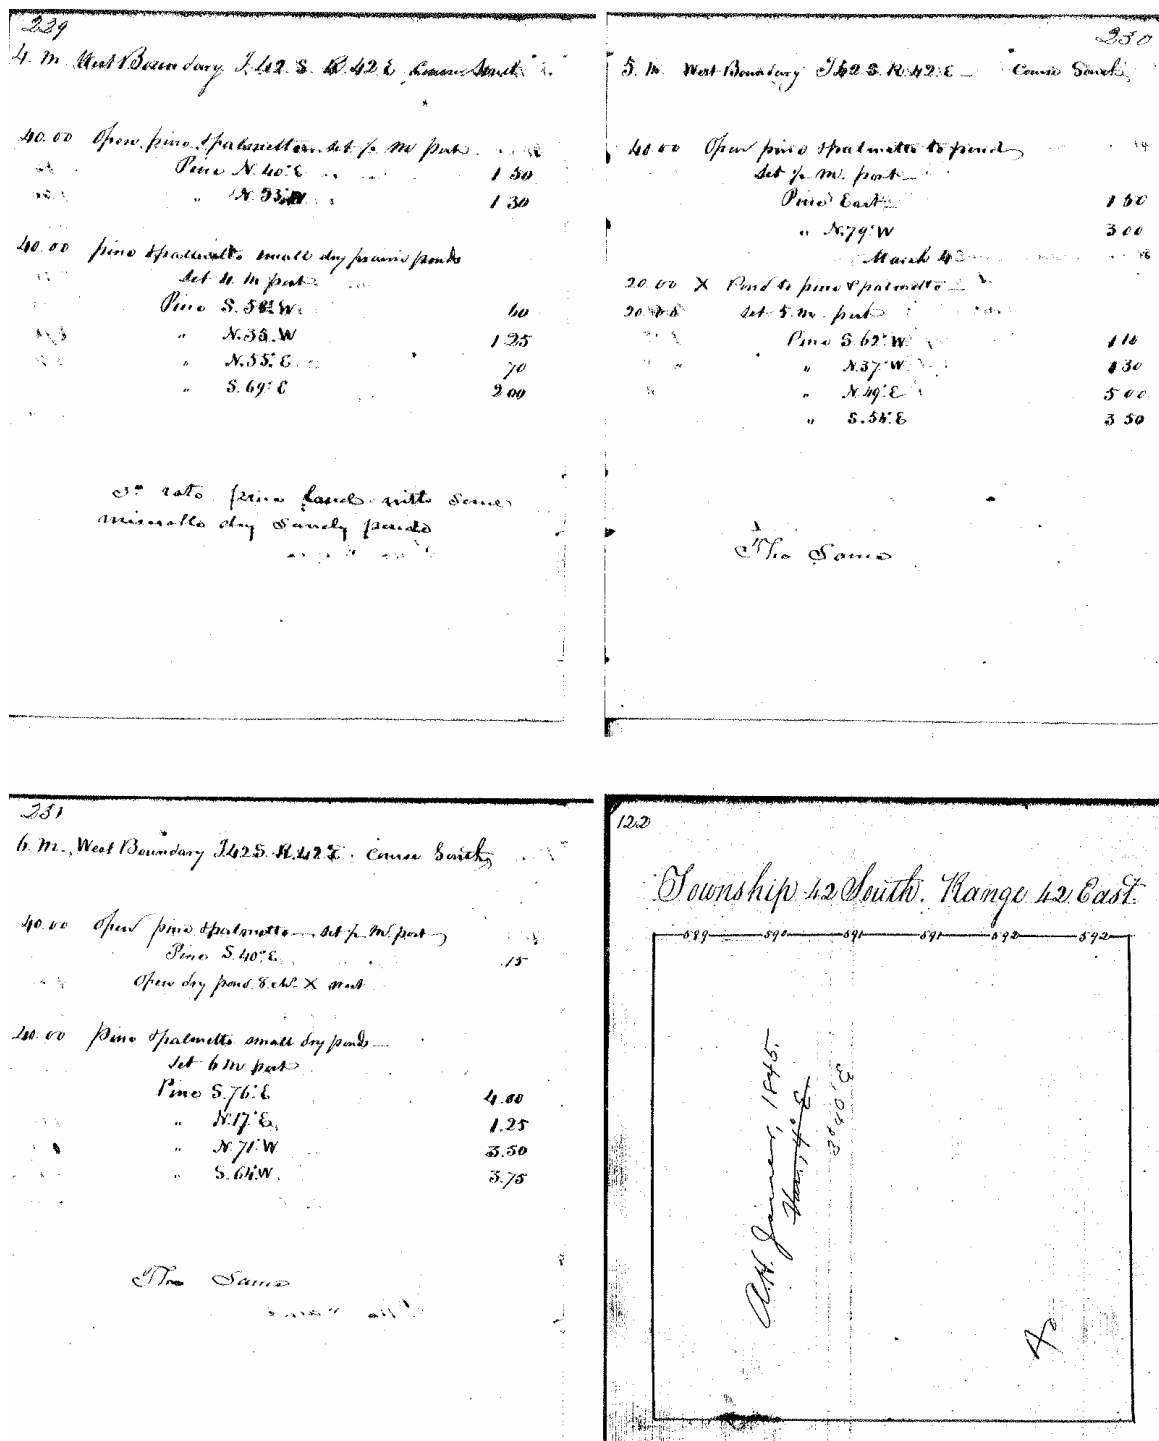 229
4. M West Boundary T.42 S. R.42 E Course South
40.00 Open pine & palmetto set ½ M post
Pine N. 40° E 1 50
" N. 53° W 1 30
40.00 pine & palmetto small dry prairie ponds
Set 4 M post
Pine S. 58° W. 60
" N. 35. W 1 25
" N. 55° E 70
" S. 69° E 2 00
3rd rate pine land with some
dry sandy ponds
230
5. M. West Boundary T42 S. R.42 E Course South
40.00 Open pine & palmetto to pond
Set ½ M. post
Pine East 1 50
" N. 79° W 3 00
March 4
20.00 X Pond to pine & palmetto
20.00 Set 5 M. post
Pine S. 62° W 1 10
" N. 37° W 1 30
" N. 49° E 5 00
" S. 55° E 3 50
The Same
231
6. M. West Boundary T.42 S. R.42 E. Course South
40.00 Open pine & palmetto set ½ M. post
Pine S. 40° E. 15
Open dry pond S.&W. X next
40.00 Pine & palmetto small dry ponds
Set 6 M post
Pine S. 76° E 4.00
" N. 17° E. 1.25
" N. 71° W 3.50
" S. 64° W. 3.75
The Same
122
Township 42 South. Range 42 East.
589 590 591 591 592 592
1845.
3° 40' E